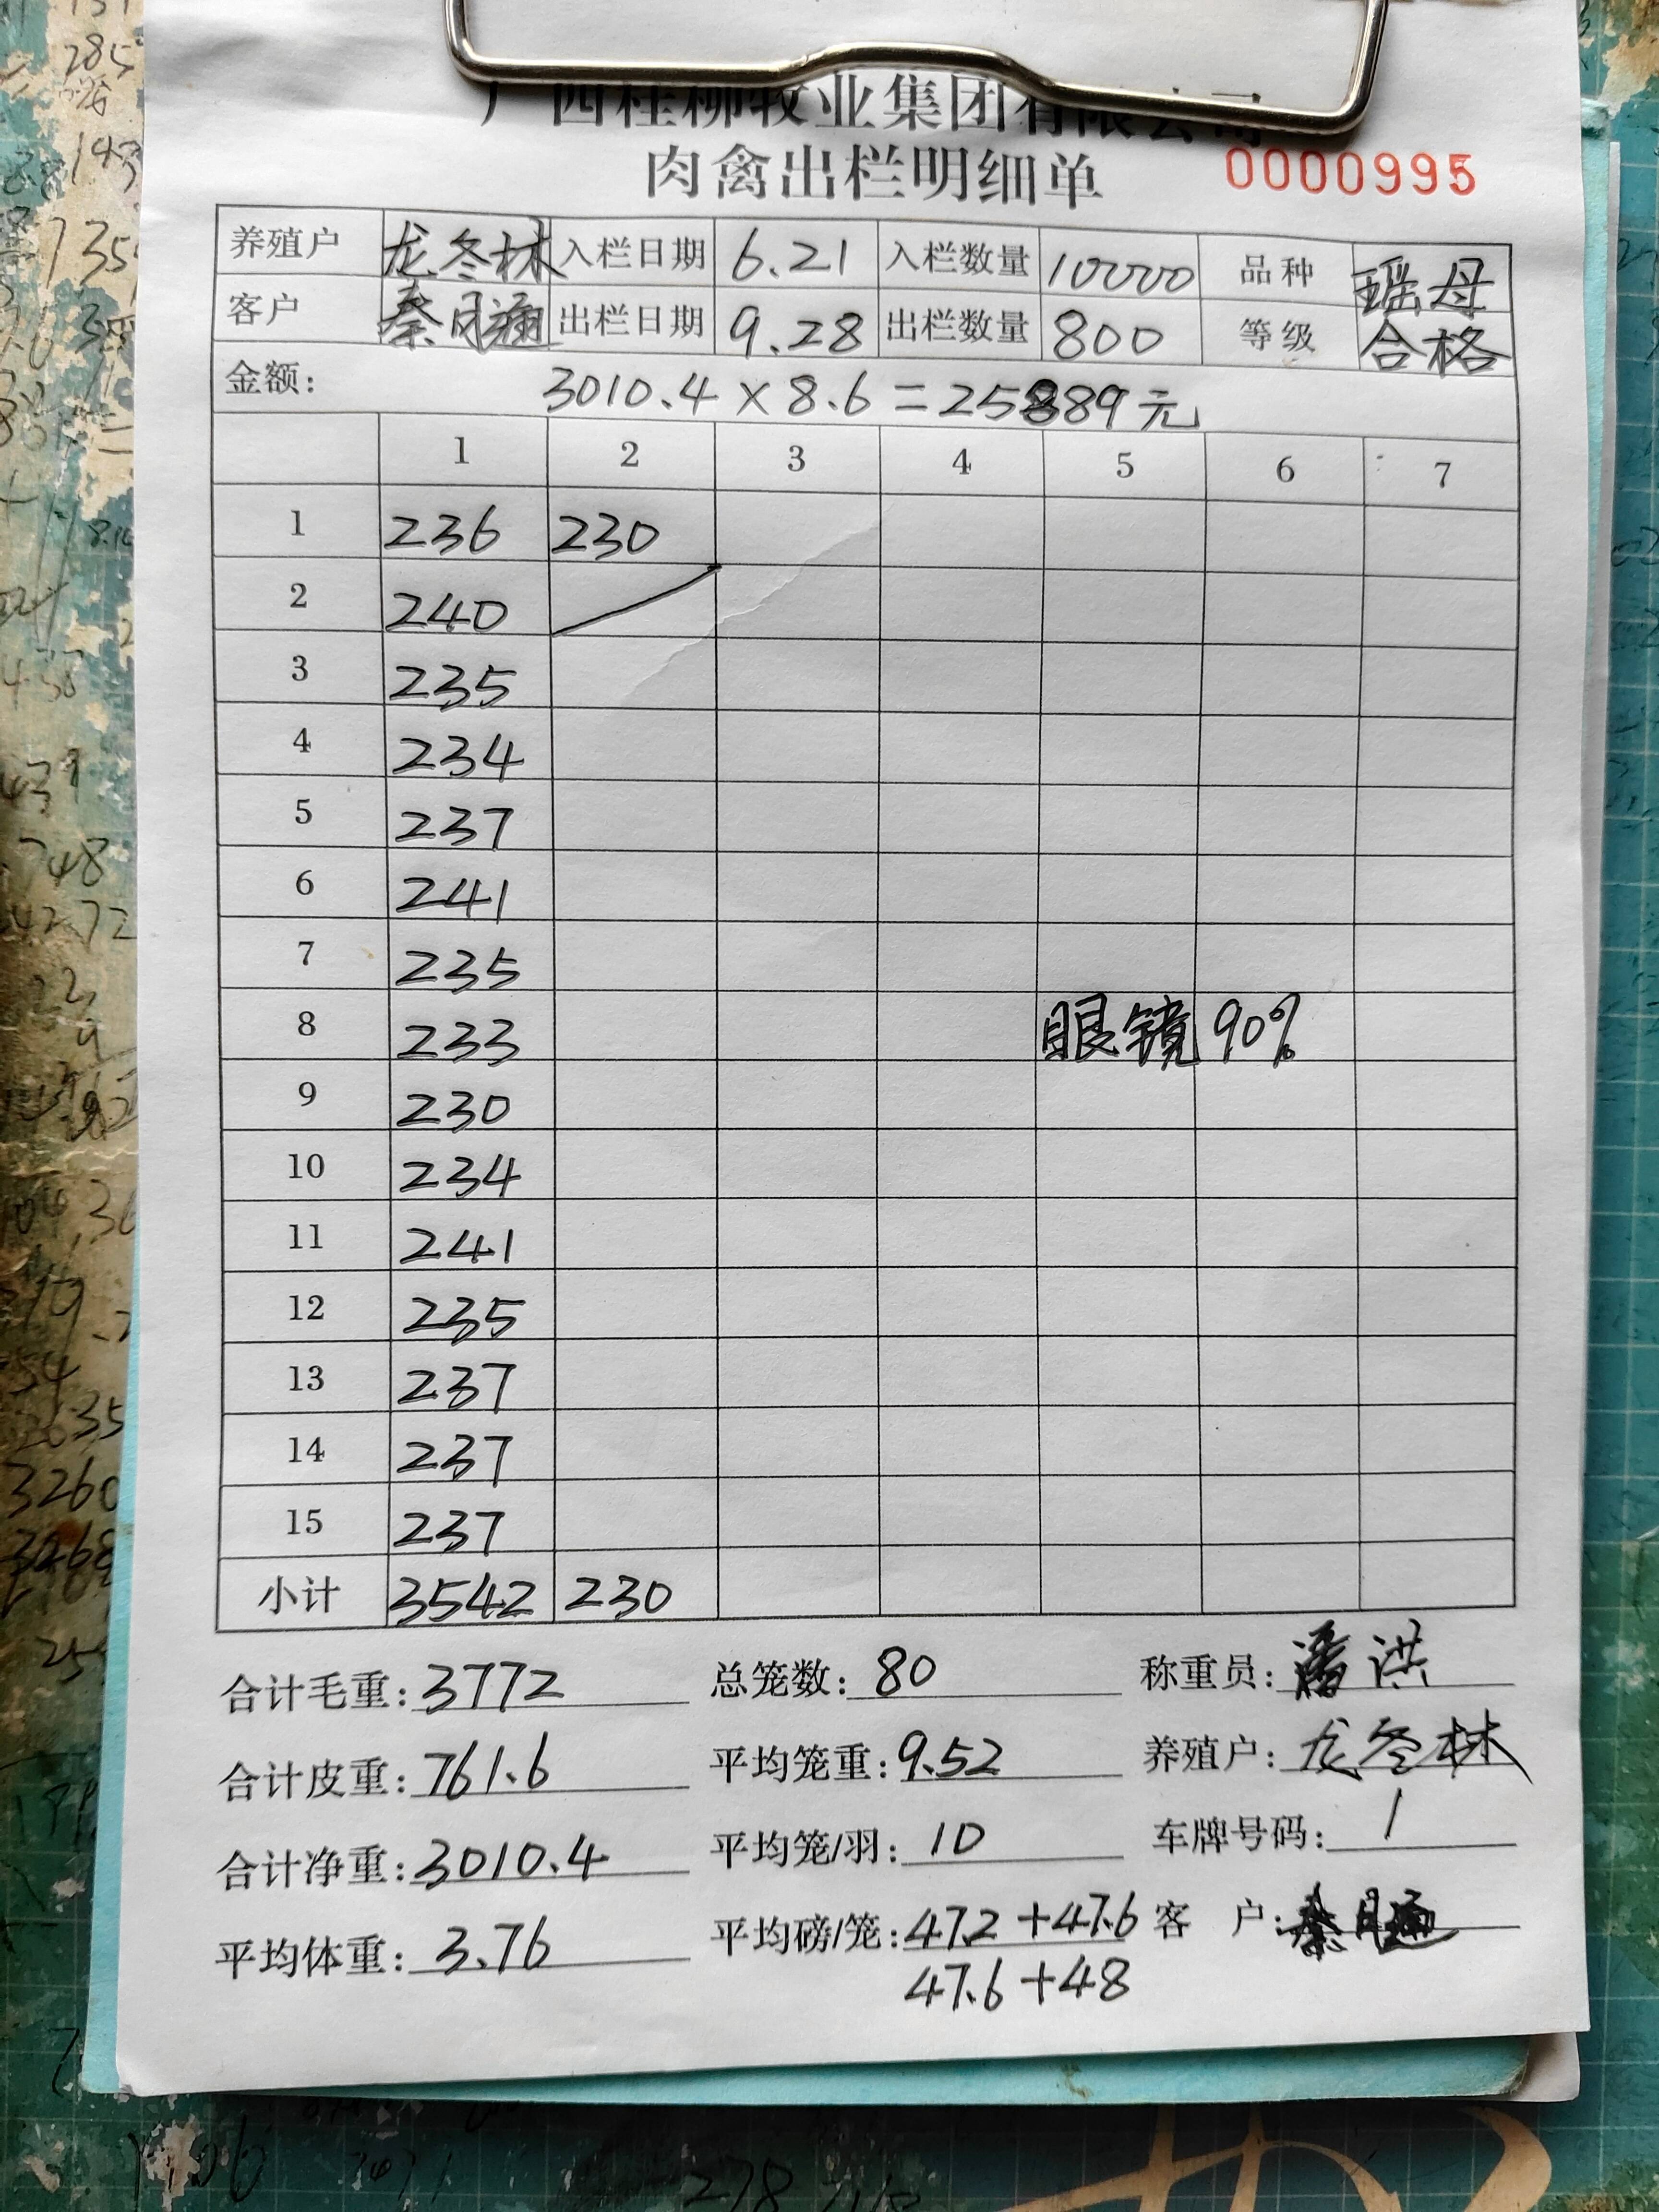 广西桂柳牧业集团有限公司
肉禽出栏明细单 0000995
养殖户 龙冬林 入栏日期 6.21 入栏数量 10000 品种 瑶母
客户 秦月通 出栏日期 9.28 出栏数量 800 等级 合格
金额: 3010.4×8.6=25889元
1 2 3 4 5 6 7
1 236 230
2 240
3 235
4 234
5 237
6 241
7 235
8 233 眼镜90%
9 230
10 234
11 241
12 235
13 237
14 237
15 237
小计 3542 230
合计毛重: 3772 总笼数: 80 称重员: 潘洪
合计皮重: 761.6 平均笼重: 9.52 养殖户: 龙冬林
合计净重: 3010.4 平均笼/羽: 10 车牌号码: 1
平均体重: 3.76 平均磅/笼: 47.2+47.6 客 户: 秦月通
47.6+48